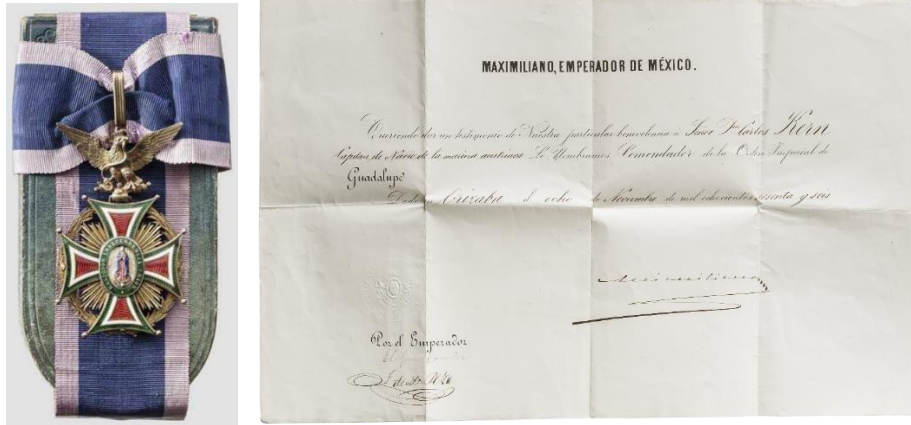 MAXIMILIANO, EMPERADOR DE MÉXICO.
Queriendo dar un testimonio de Nuestra particular benevolencia á Señor Dn Carlos Kern
Capitan de Navio de la marina austriaca Le Nombramos Comendador de la Orden Imperial de
Guadalupe
Dado en Orizaba el ocho de Noviembre de mil ochocientos sesenta y seis
Por el Emperador